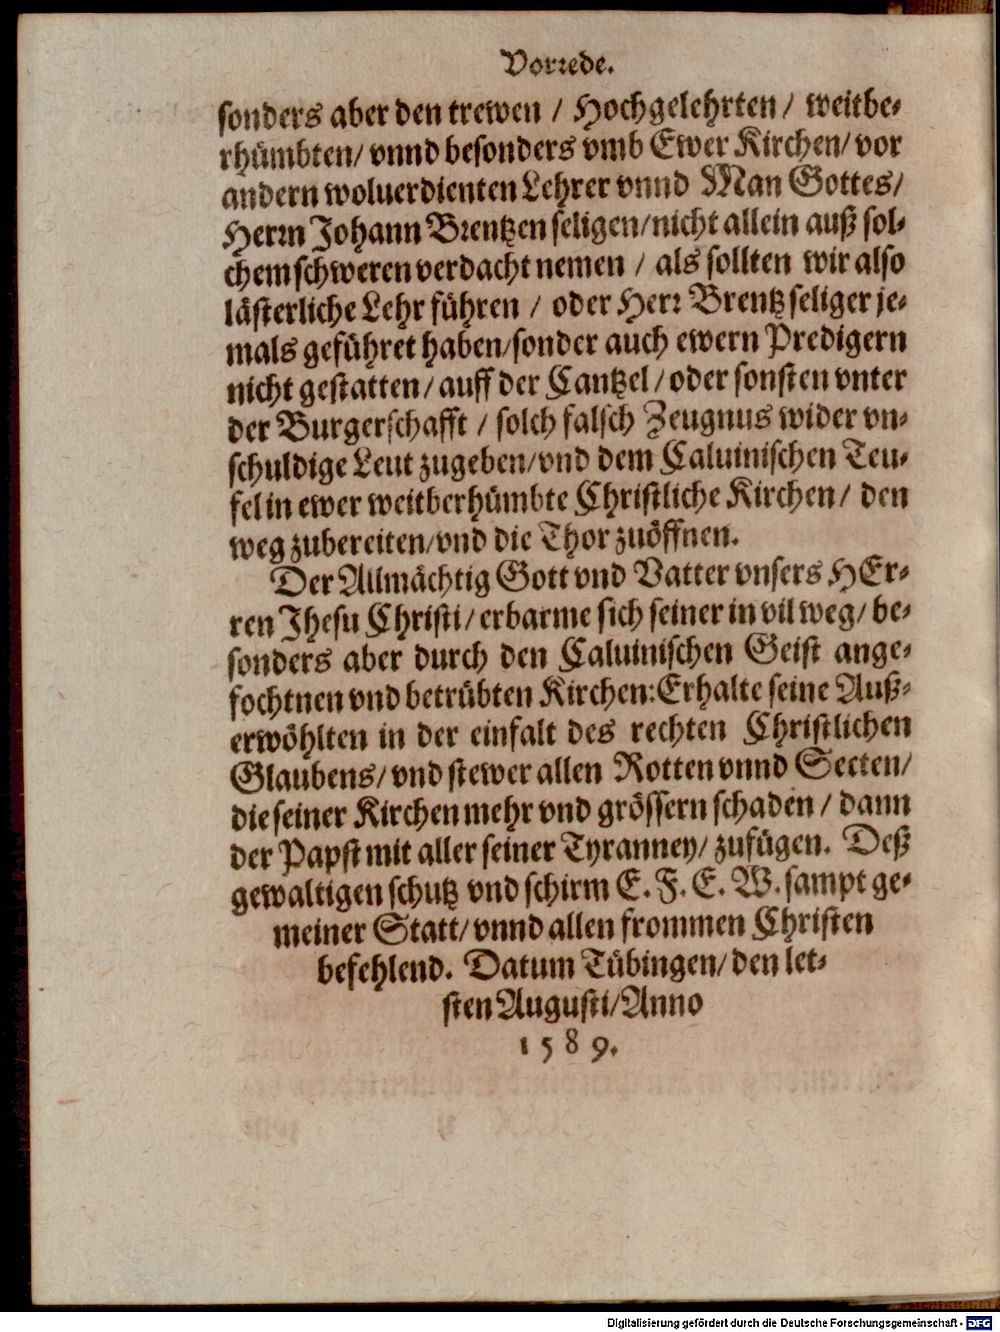 Vorrede.
sonders aber den trewen / Hochgelehrten / weitbe-
rhümbten / vnnd besonders vmb Ewer Kirchen / vor
andern woluerdienten Lehrer vnnd Man Gottes /
Herrn Johann Brentzen seligen / nicht allein auß sol-
chem schweren verdacht nemen / als sollten wir also
lästerliche Lehr führen / oder Herr Brentz seliger je-
mals geführet haben / sonder auch ewern Predigern
nicht gestatten / auff der Cantzel / oder sonsten vnter
der Burgerschafft / solch falsch Zeugnus wider vn-
schuldige Leut zugeben / vnd dem Caluinischen Teu-
fel in ewer weitberhümbte Christliche Kirchen / den
weg zubereiten / vnd die Thor zuöffnen.
Der Allmächtig Gott vnd Vatter vnsers HEr-
ren Jhesu Christi / erbarme sich seiner in vil weg / be-
sonders aber durch den Caluinischen Geist ange-
fochtnen vnd betrübten Kirchen: Erhalte seine Auß-
erwöhlten in der einfalt des rechten Christlichen
Glaubens / vnd stewer allen Rotten vnnd Secten /
die seiner Kirchen mehr vnd grössern schaden / dann
der Papst mit aller seiner Tyranney / zufügen. Deß
gewaltigen schutz vnd schirm E. F. E. W. sampt ge-
meiner Statt / vnnd allen frommen Christen
befehlend. Datum Tübingen / den let-
sten Augusti / Anno
1589.
Digitalisierung gefördert durch die Deutsche Forschungsgemeinschaft - DFG